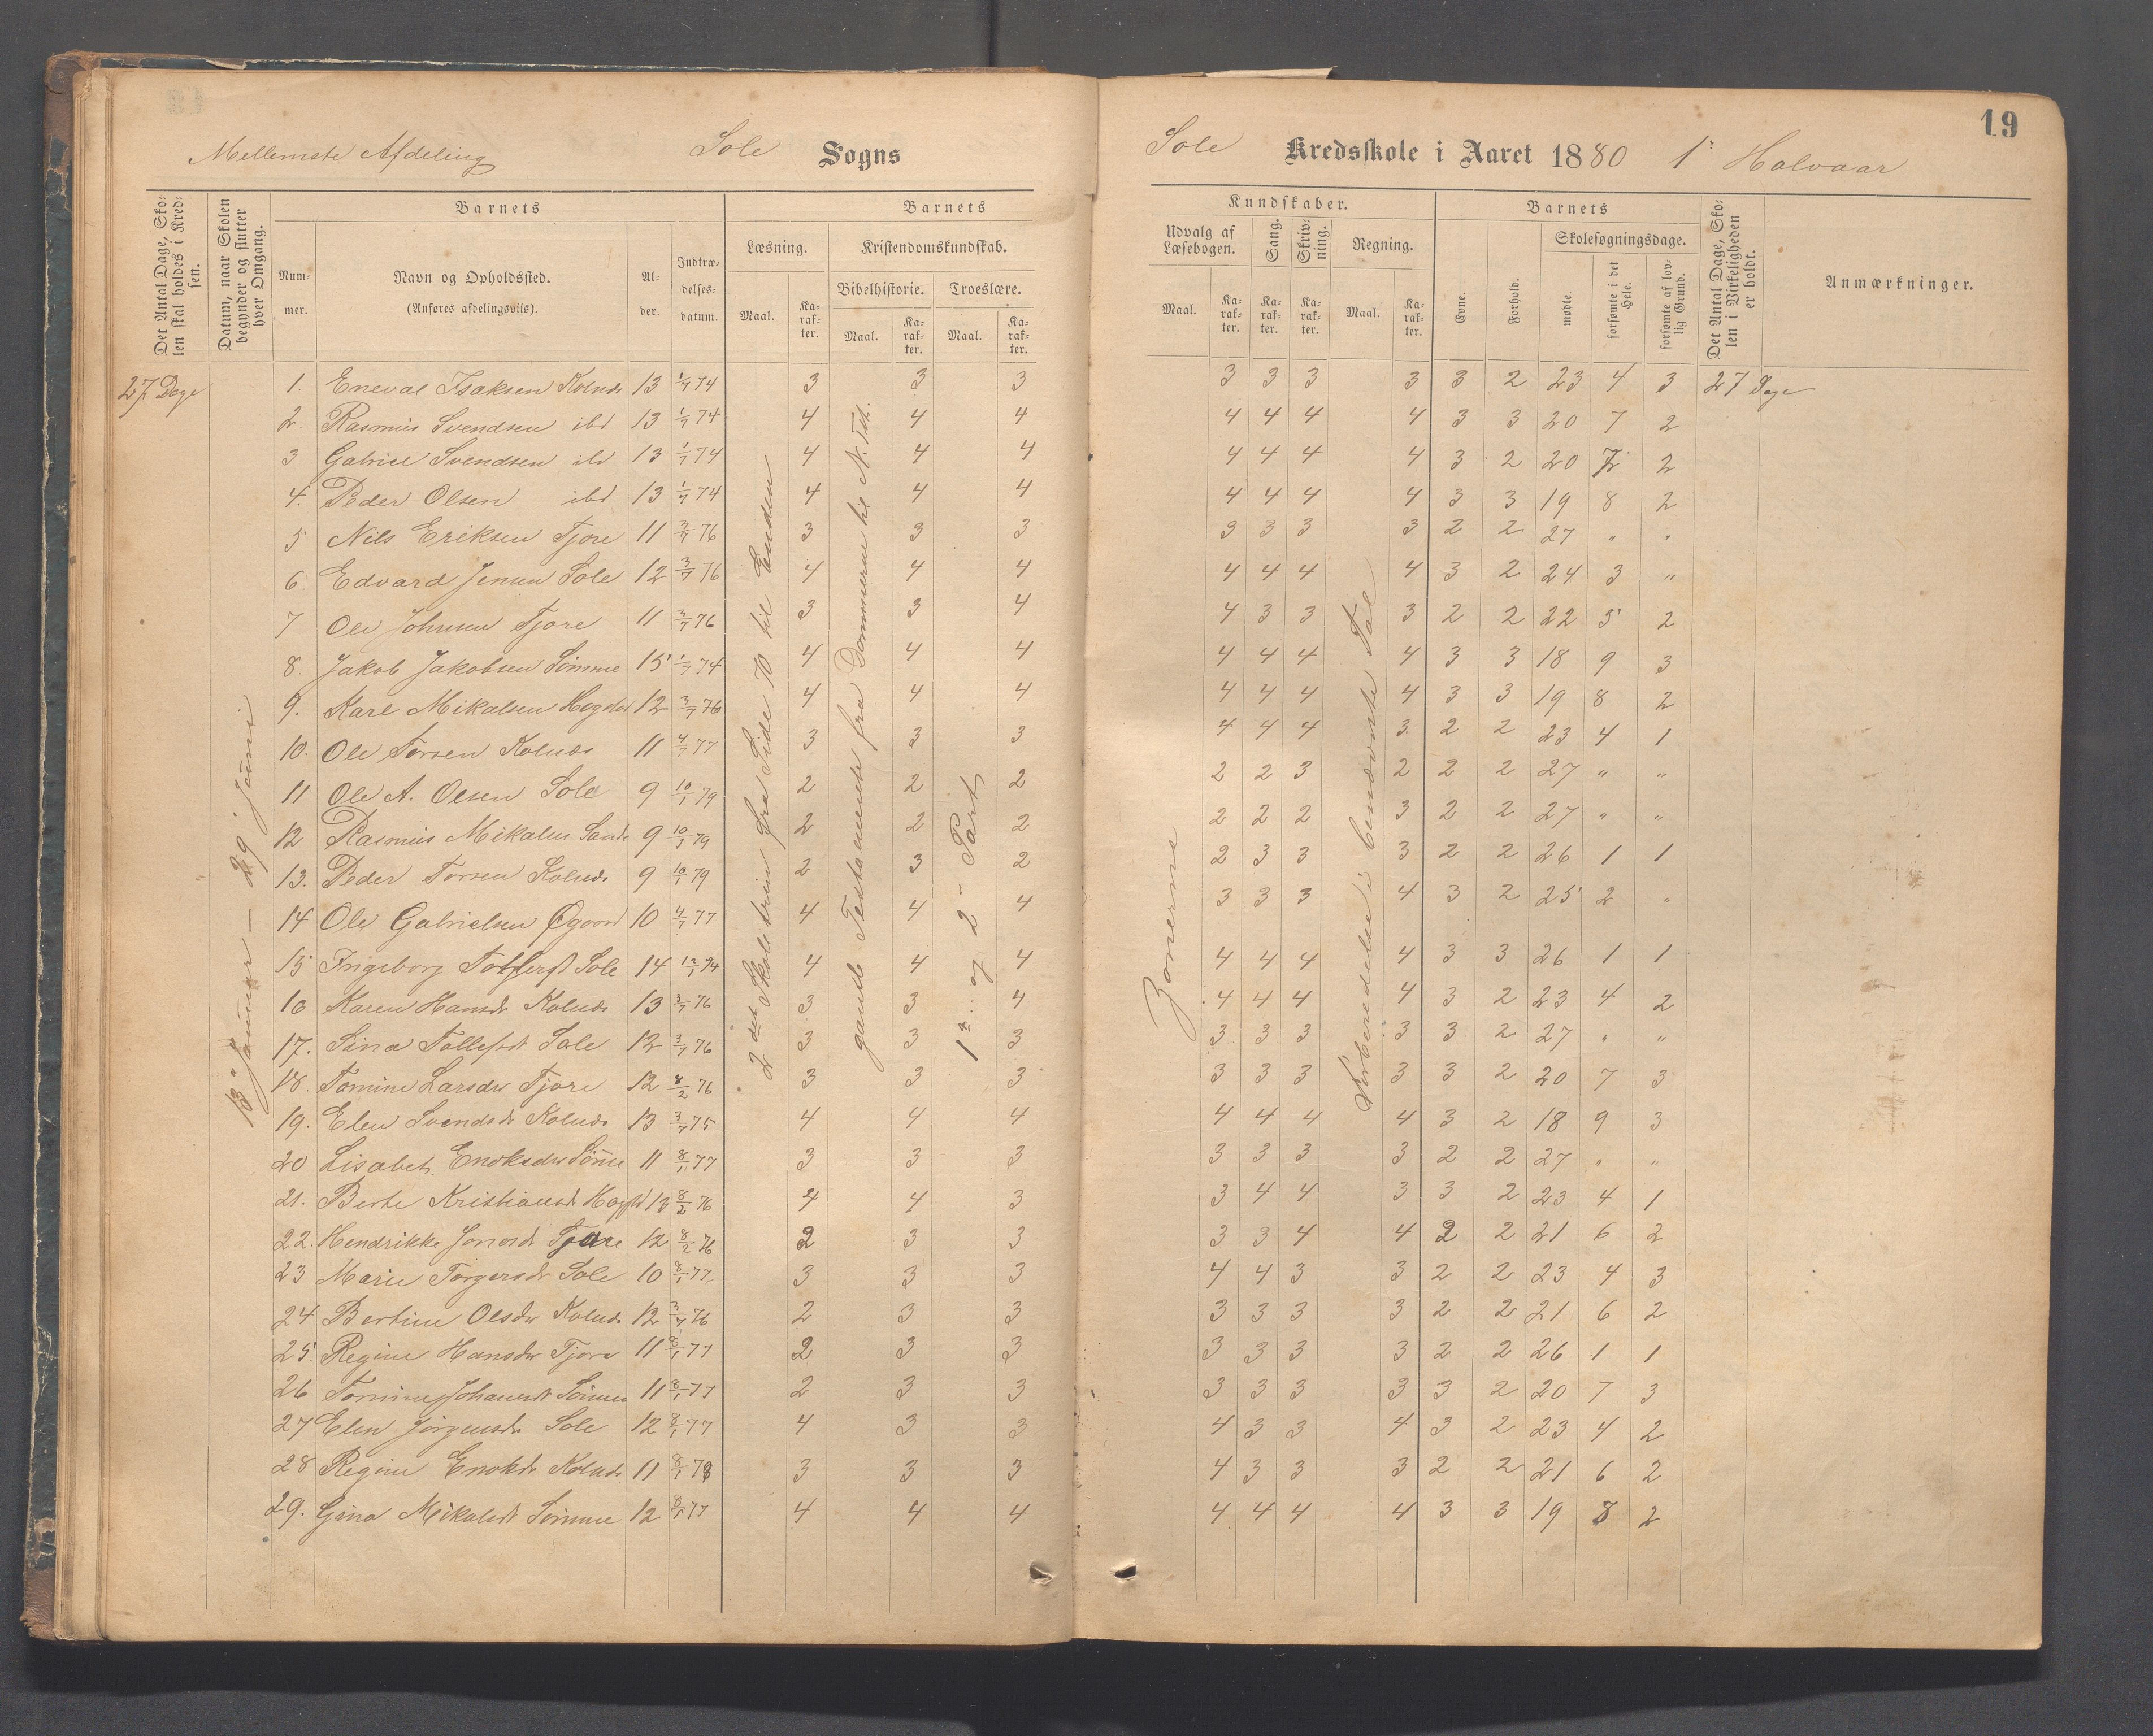 19
Mellemste Afdeling Sole Sogns
Sole Kredsskole i Aaret 1880 1ste Halvaar
Det Antal Dage, Skolen skal holdes i Kredsen.
Datum, naar Skolen begynder og slutter hver Omgang.
Barnets
Nummer.
Navn og Opholdssted.
(Anføres afdelingsviis).
Alder.
Indtrædelsesdatum.
Barnets Kundskaber.
Læsning. Maal. Karakter.
Kristendomskundskab.
Bibelhistorie. Maal. Karakter.
Troeslære. Maal. Karakter.
Udvalg af Læsebogen. Maal. Karakter.
Sang. Karakter.
Skrivning. Karakter.
Regning. Maal. Karakter.
Barnets
Evne.
Forhold.
Skolesøgningsdage.
mødte.
forsømte i det Hele.
forsømte af lovlig Grund.
Det Antal Dage, Skolen i Virkeligheden er holdt.
Anmærkninger.
27 Dage
13 Januar — 29 Juni
2det Skoletrin fra Side 70 til Enden
gamle Testamente fra Dommerne til N. Tst.
1ste og 2 Part
Zonerne
Forberedelse i benævnte Tal
1. Eneval Isaksen Kolnds 13 1/7 74 3 3 3 3 3 3 3 3 2 23 4 3 27 Dage
2. Rasmus Svendsen ibd 13 1/7 74 4 4 4 4 4 4 4 3 3 20 7 2
3 Gabriel Svendsen ibd 13 1/7 74 4 4 4 4 4 4 4 3 2 20 7 2
4. Peder Olsen ibd 13 1/7 74 4 4 4 4 4 4 4 3 3 19 8 2
5 Nils Eriksen Tjore 11 3/7 76 3 3 3 3 3 3 3 2 2 27 " "
6 Edvard Jensen Sole 12 3/7 76 4 4 4 4 4 4 4 3 2 24 3 "
7 Ole Johnsen Tjore 11 3/7 76 3 3 4 4 3 3 3 2 2 22 5 2
8. Jakob Jakobsen Sømme 15 1/7 74 4 4 4 4 4 4 4 3 3 18 9 3
9. Karl Mikalsen 12 3/7 76 4 4 4 4 4 4 4 3 3 19 8 2
10. Ole Torsen Kolnds 11 4/7 77 3 3 3 4 4 4 3 2 2 23 4 1
11 Ole A. Olsen Sole 9 10/1 79 2 2 2 2 2 3 2 2 2 27 " "
12 Rasmus Mikalsen Sande 9 10/1 79 2 2 2 2 2 2 3 2 2 27 " "
13. Peder Torsen Kolnds 9 10/1 79 2 3 2 2 3 3 3 2 2 26 1 1
14 Ole Gabrielsen 10 4/7 77 4 4 4 3 3 3 4 3 2 25 2 "
15 Ingeborg Sole 14 12/1 74 4 4 4 4 4 4 4 3 3 26 1 1
16 Karen Hansdr Kolnds 13 3/7 76 3 3 4 4 4 4 4 3 2 23 4 2
17. Sina Tollefsdt Sole 12 3/7 76 3 3 3 3 3 3 3 3 2 27 " "
18. Tomine Larsdr Tjore 12 8/2 76 3 3 3 3 3 3 3 3 2 20 7 3
19. Elen Svendsdr Kolnds 13 3/7 75 4 4 4 4 4 4 4 3 2 18 9 3
20 Lisabet Enoksdr Sømme 11 8/1 77 3 3 3 3 3 3 3 2 2 27 " "
21. Berte Kristiansdt 13 8/2 76 4 4 3 3 4 4 3 3 2 23 4 1
22. Hendrikke Jonasdt Tjore 12 8/2 76 2 3 3 3 3 4 4 2 2 21 6 2
23 Marie Torgersdr Sole 10 8/1 77 3 3 3 4 4 3 3 2 2 23 4 3
24 Bertine Olsdr Kolnds 12 3/7 76 2 3 3 3 3 3 3 2 2 21 6 2
25. Regine Hansdr Tjora 11 8/1 77 2 3 3 3 3 3 3 2 2 26 1 1
26 Tomine Johannesdt Sømme 11 8/1 77 2 3 3 3 3 3 3 3 2 20 7 3
27 Elen Jörgensdr Sole 12 8/1 77 4 3 3 4 3 3 4 3 2 23 4 2
28 Regine Enoksdr Kolnds 11 8/1 78 3 3 3 4 3 3 3 2 2 21 6 2
29. Gina Mikalsdt Sømme 12 8/1 77 4 4 4 4 4 4 4 3 3 19 8 2